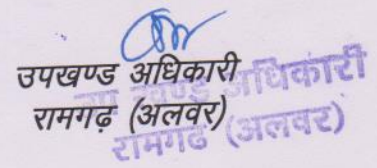 उपखण्ड अधिकारी
रामगढ़ (अलवर)
उप खण्ड अधिकारी
रामगढ (अलवर)